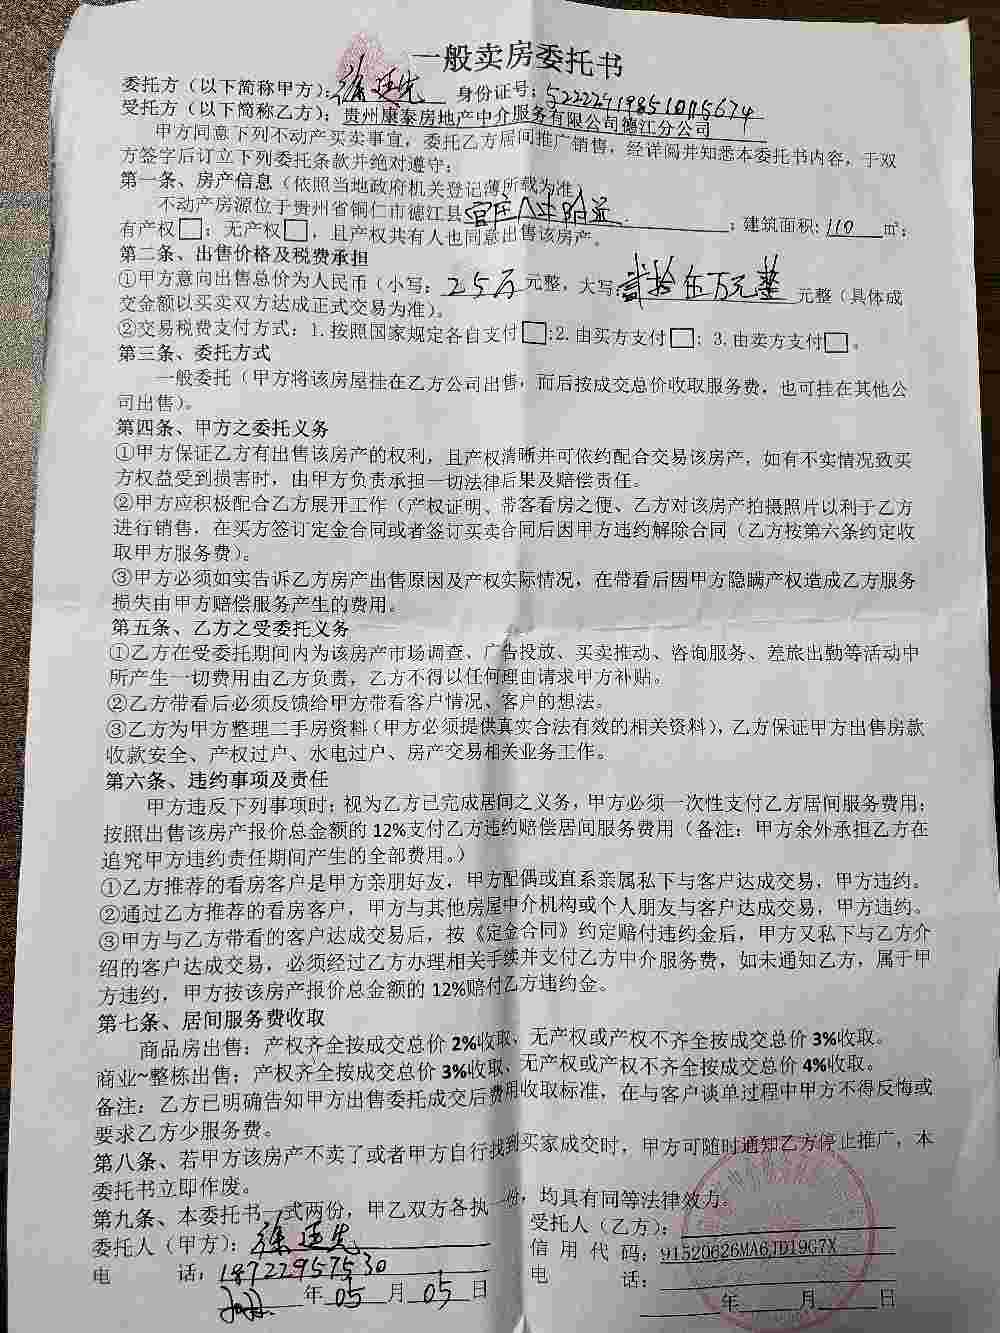 一般卖房委托书
委托方（以下简称甲方）：徐廷先 身份证号：
受托方（以下简称乙方）：贵州康泰房地产中介服务有限公司德江分公司
甲方同意下列不动产买卖事宜，委托乙方居间推广销售，经详阅并知悉本委托书内容，于双
方签字后订立下列委托条款并绝对遵守：
第一条、房产信息（依照当地政府机关登记薄所载为准）
不动产房源位于贵州省铜仁市德江县 附近 ；建筑面积：110 ㎡；
有产权□；无产权□，且产权共有人也同意出售该房产。
第二条、出售价格及税费承担
①甲方意向出售总价为人民币（小写：25万 元整，大写：贰拾伍万元整 元整（具体成
交金额以买卖双方达成正式交易为准）。
②交易税费支付方式：1.按照国家规定各自支付□；2.由买方支付□；3.由卖方支付□。
第三条、委托方式
一般委托（甲方将该房屋挂在乙方公司出售，而后按成交总价收取服务费，也可挂在其他公
司出售）。
第四条、甲方之委托义务
①甲方保证乙方有出售该房产的权利，且产权清晰并可依约配合交易该房产，如有不实情况致买
方权益受到损害时，由甲方负责承担一切法律后果及赔偿责任。
②甲方应积极配合乙方展开工作（产权证明、带客看房之便、乙方对该房产拍摄照片以利于乙方
进行销售，在买方签订定金合同或者签订买卖合同后因甲方违约解除合同（乙方按第六条约定收
取甲方服务费）。
③甲方必须如实告诉乙方房产出售原因及产权实际情况，在带看后因甲方隐瞒产权造成乙方服务
损失由甲方赔偿服务产生的费用。
第五条、乙方之受委托义务
①乙方在受委托期间内为该房产市场调查、广告投放、买卖推动、咨询服务、差旅出勤等活动中
所产生一切费用由乙方负责，乙方不得以任何理由请求甲方补贴。
②乙方带看后必须反馈给甲方带看客户情况、客户的想法。
③乙方为甲方整理二手房资料（甲方必须提供真实合法有效的相关资料），乙方保证甲方出售房款
收款安全、产权过户、水电过户、房产交易相关业务工作。
第六条、违约事项及责任
甲方违反下列事项时；视为乙方已完成居间之义务，甲方必须一次性支付乙方居间服务费用；
按照出售该房产报价总金额的 12%支付乙方违约赔偿居间服务费用（备注：甲方余外承担乙方在
追究甲方违约责任期间产生的全部费用。）
①乙方推荐的看房客户是甲方亲朋好友，甲方配偶或直系亲属私下与客户达成交易，甲方违约。
②通过乙方推荐的看房客户，甲方与其他房屋中介机构或个人朋友与客户达成交易，甲方违约。
③甲方与乙方带看的客户达成交易后，按《定金合同》约定赔付违约金后，甲方又私下与乙方介
绍的客户达成交易，必须经过乙方办理相关手续并支付乙方中介服务费，如未通知乙方，属于甲
方违约，甲方按该房产报价总金额的 12%赔付乙方违约金。
第七条、居间服务费收取
商品房出售：产权齐全按成交总价 2%收取、无产权或产权不齐全按成交总价 3%收取。
商业~整栋出售；产权齐全按成交总价 3%收取、无产权或产权不齐全按成交总价 4%收取。
备注：乙方已明确告知甲方出售委托成交后费用收取标准，在与客户谈单过程中甲方不得反悔或
要求乙方少服务费。
第八条、若甲方该房产不卖了或者甲方自行找到买家成交时，甲方可随时通知乙方停止推广，本
委托书立即作废。
第九条、本委托书一式两份，甲乙双方各执一份，均具有同等法律效力。
委托人（甲方）：徐廷先
受托人（乙方）：
信用代码：91520626MA6JDT9G7X
电 话：18722957530
电 话：
年 05 月 05 日
年 月 日